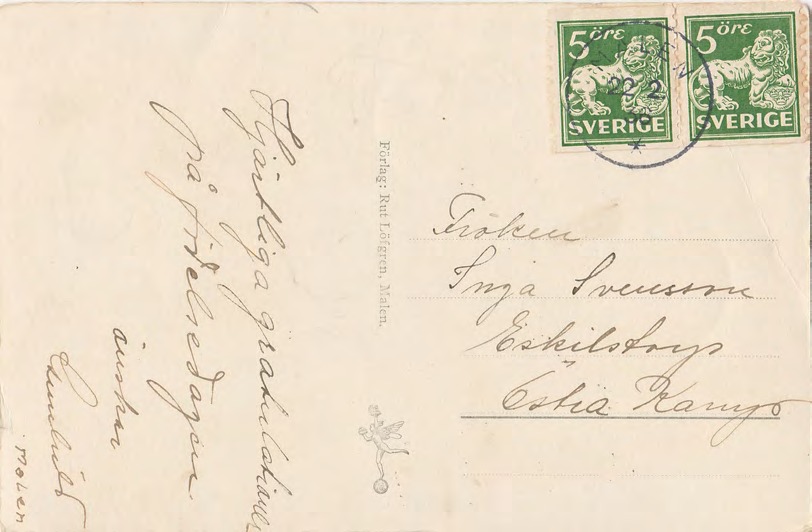 5 öre
SVERIGE
5 öre
SVERIGE
MALEN
22 2
Hjärtliga gratulationer
på födelsedagen
önskar
Malen
Förlag: Rut Löfgren, Malen.
Fröken
Inga Svensson
Eskilstorp
Östra Karup